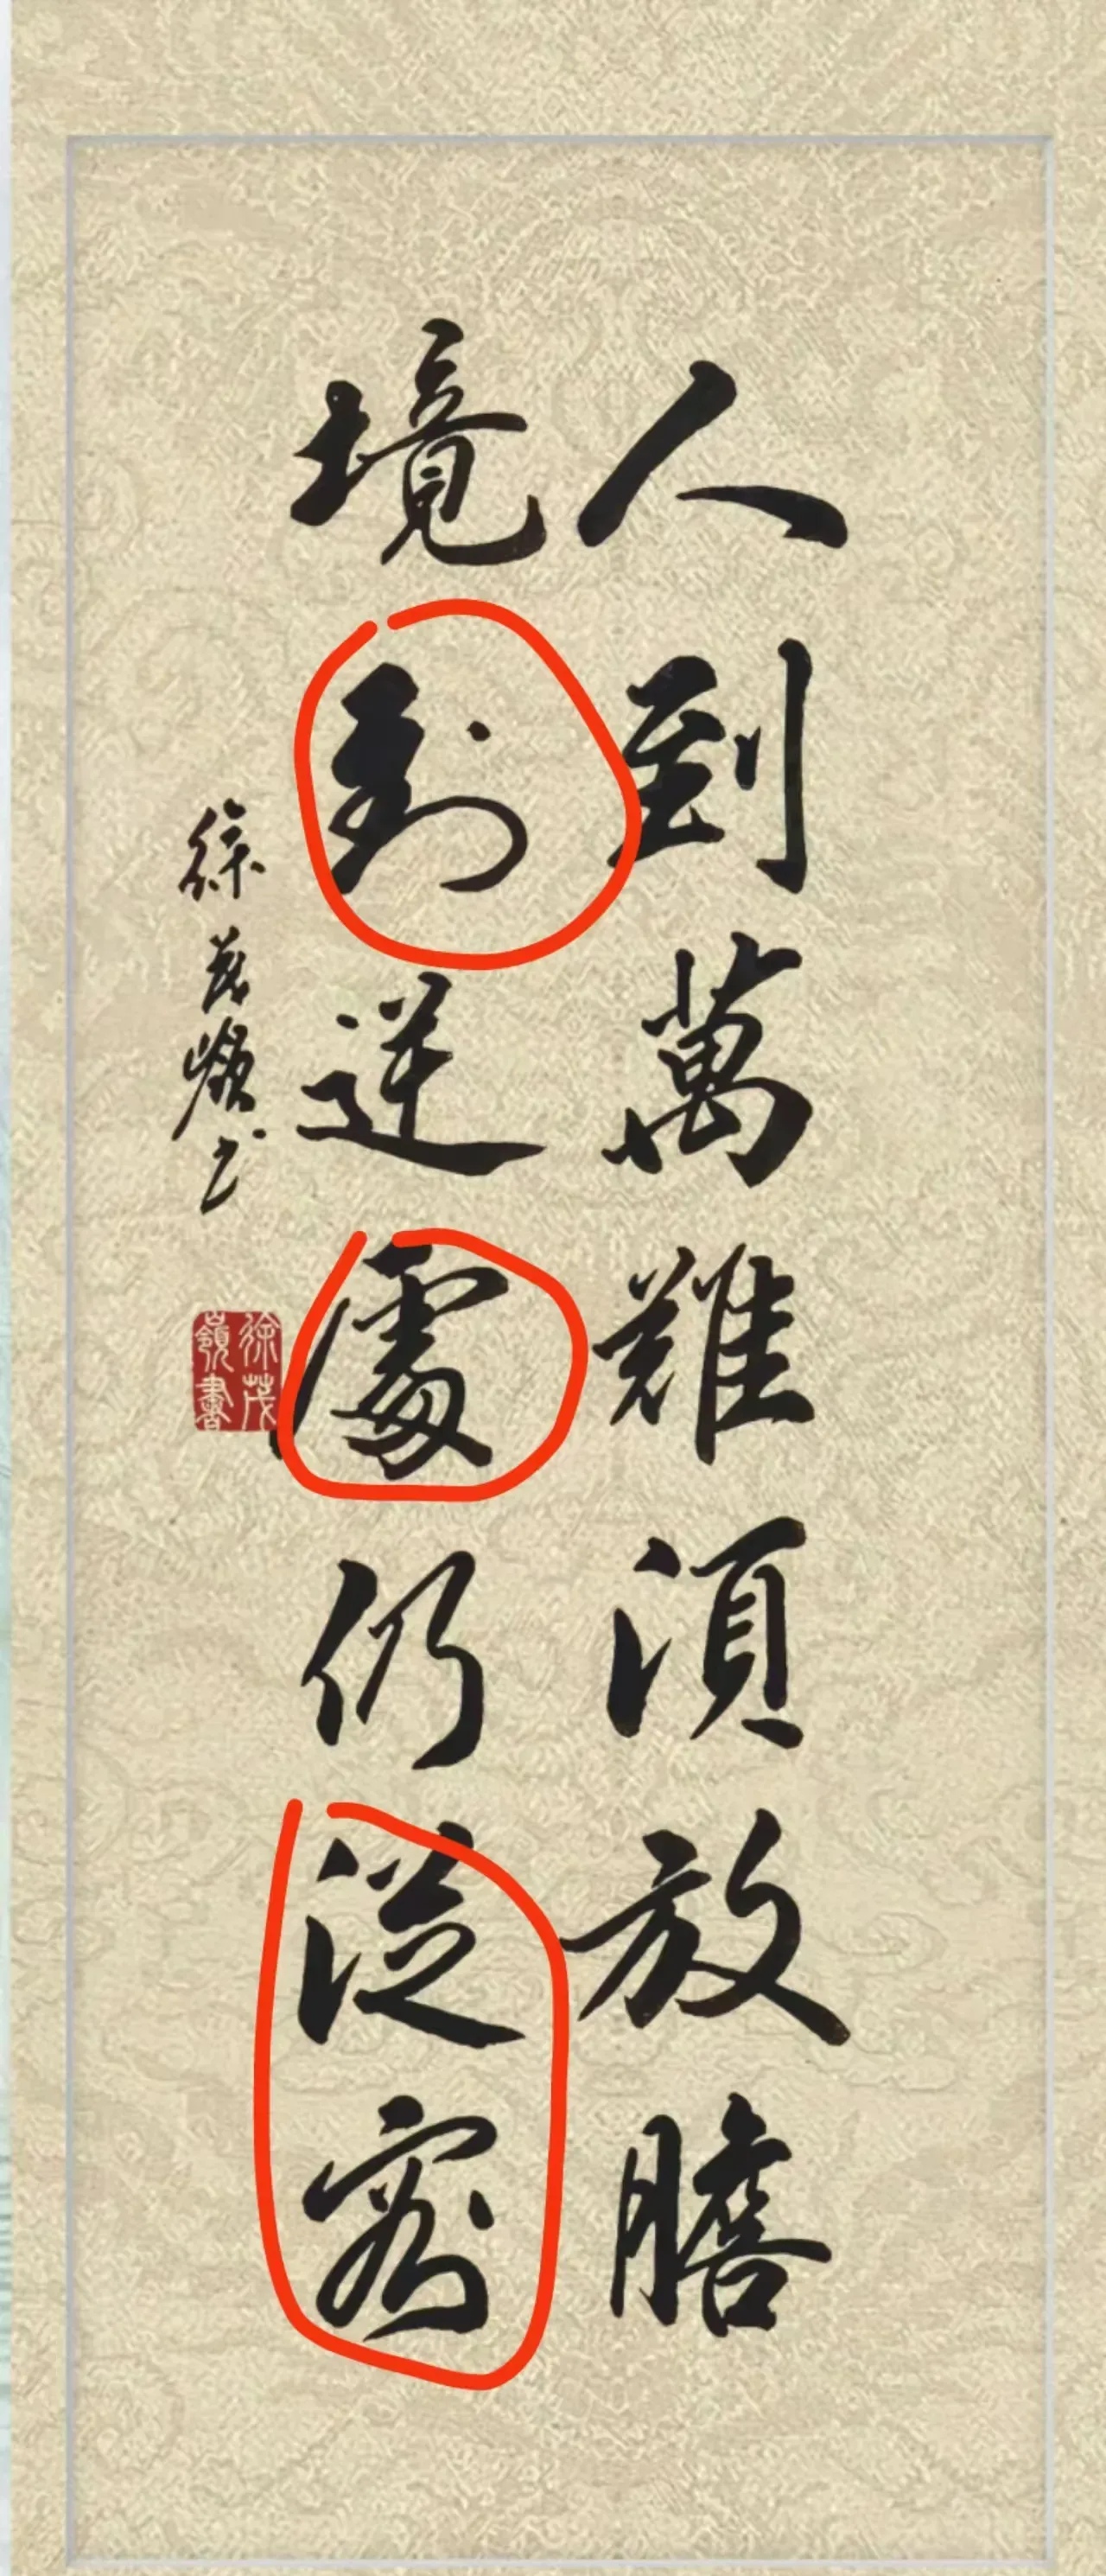 人到萬難須放膽
境到逆處仍從容
徐茂嶺书
徐茂嶺書